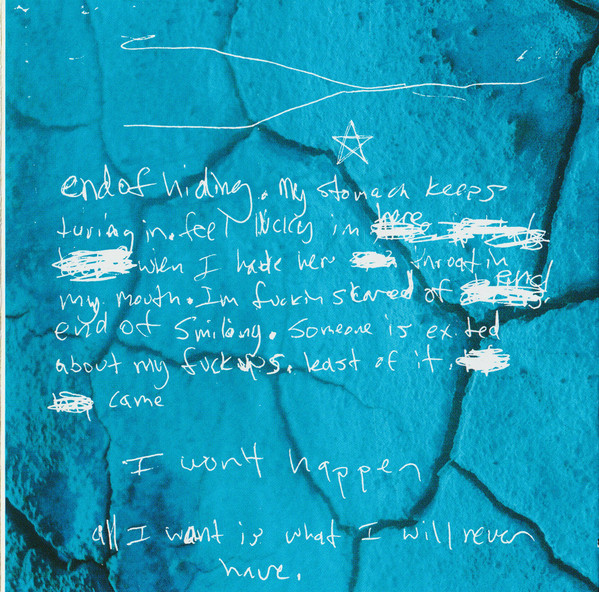 end of hiding. My stomach keeps
turing in. feel lucky im here
when I had her throat in
my mouth. Im fuckin skared of end
end of smiling. someone is exited
about my fuckups. least of it.
came
I won't happen
all I want is what I will never
have.